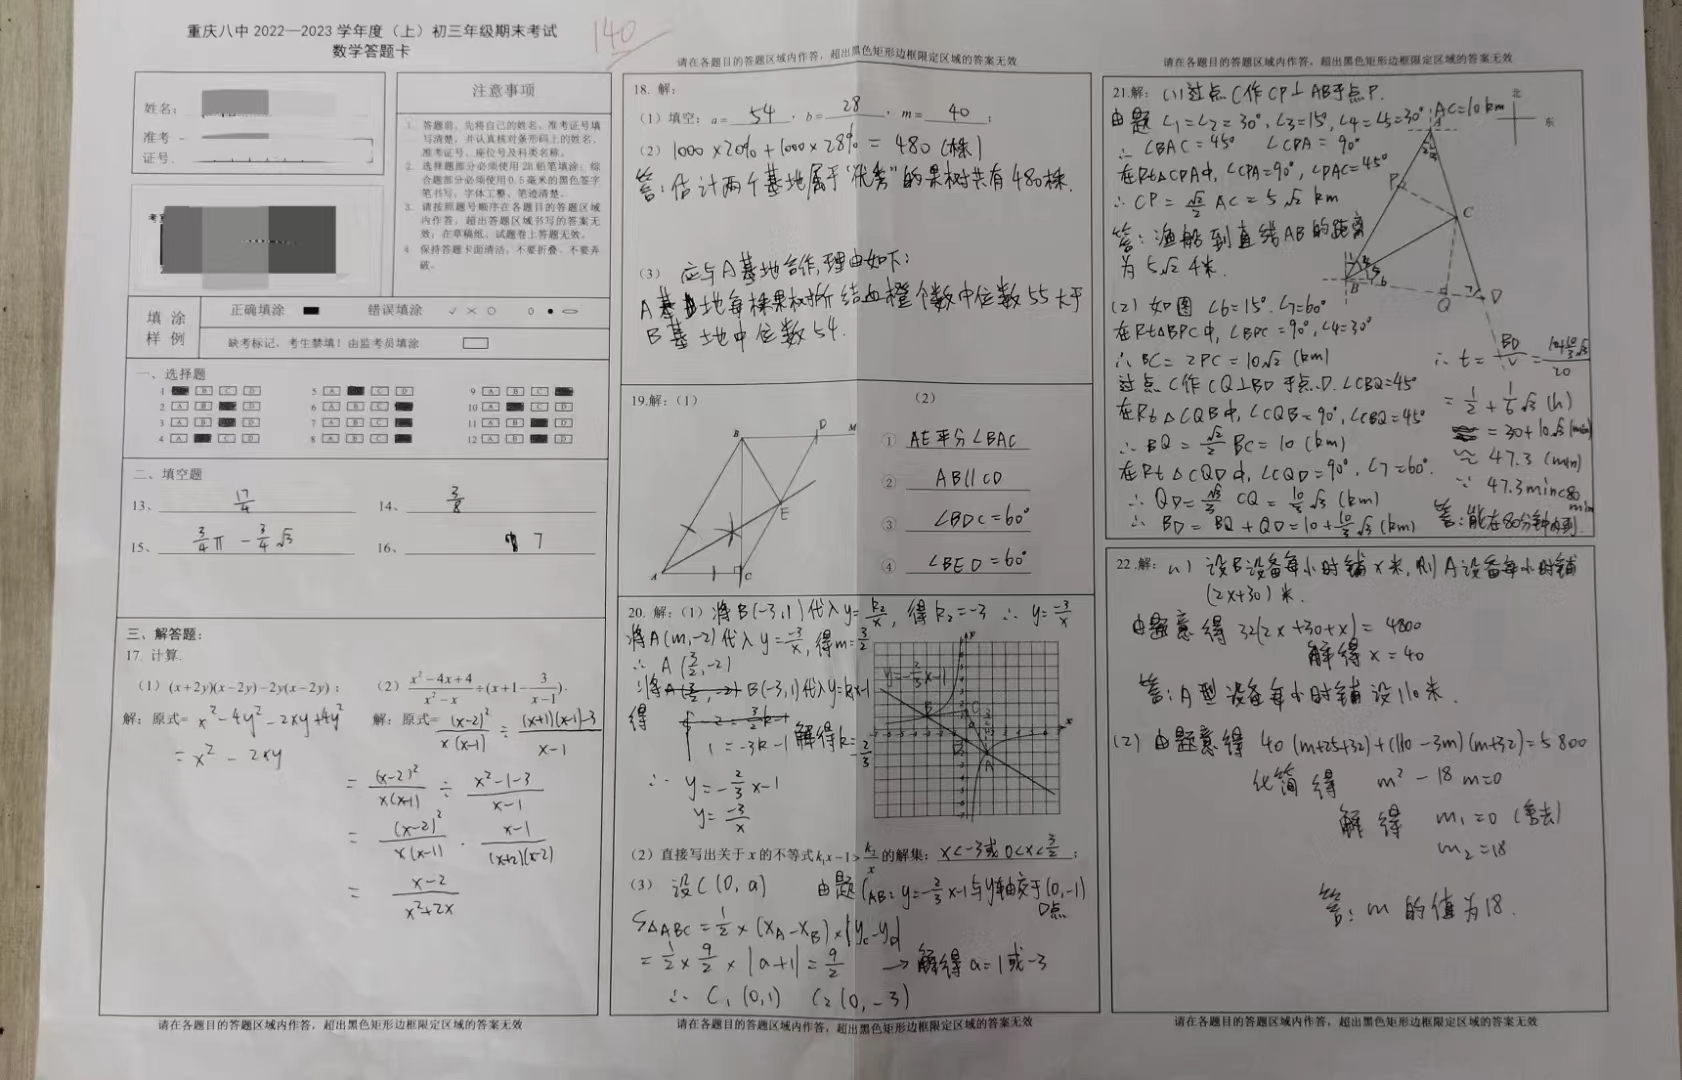 重庆八中 2022—2023 学年度（上）初三年级期末考试
数学答题卡
140
姓名：
准考
证号
注意事项
1. 答题前，先将自己的姓名、准考证号填
写清楚，并认真核对条形码上的姓名、
准考证号、座位号及科类名称。
2. 选择题部分必须使用2B铅笔填涂；综
合题部分必须使用0.5毫米的黑色签字
笔书写，字体工整、笔迹清楚。
3. 请按照题号顺序在各题目的答题区域
内作答，超出答题区域书写的答案无
效；在草稿纸、试题卷上答题无效。
4. 保持答题卡面清洁，不要折叠、不要弄
破。
填 涂
样 例
正确填涂
错误填涂
缺考标记，考生禁填！由监考员填涂
一、选择题
1 B C D
2 A B D
3 A B D
4 A C D
5 A C D
6 A B C
7 A B C
8 A B C
9 A B C
10 A C D
11 A B D
12 A B D
二、填空题
13、 17/4
14、 3/8
15、 3/4 π - 3/4 √3
16、 7
三、解答题：
17. 计算.
（1）(x+2y)(x-2y)-2y(x-2y)；
解：原式= x²-4y²-2xy+4y²
= x²-2xy
（2）(x²-4x+4)/(x²-x) ÷ (x+1-3/(x-1)).
解：原式= (x-2)²/x(x-1) ÷ ((x+1)(x-1)-3)/(x-1)
= (x-2)²/x(x-1) ÷ (x²-1-3)/(x-1)
= (x-2)²/x(x-1) · (x-1)/(x+2)(x-2)
= (x-2)/(x²+2x)
请在各题目的答题区域内作答，超出黑色矩形边框限定区域的答案无效
请在各题目的答题区域内作答，超出黑色矩形边框限定区域的答案无效
18. 解：
（1）填空：a= 54 ，b= 28 ，m= 40 ；
（2）1000×20%+1000×28% = 480 (株)
答：估计两个基地属于"优秀"的果树共有480株.
（3） 应与A基地合作,理由如下：
A基地每株果树所结血橙个数中位数55大于
B基地中位数54.
19.解：（1）
B D M
E
A C
（2）
① AE平分∠BAC
② AB∥CD
③ ∠BDC=60°
④ ∠BED=60°
20. 解：（1）将B(-3,1)代入y=k₂/x, 得k₂=-3 ∴ y=-3/x
将A(m,-2)代入y=-3/x, 得m=3/2
∴ A(3/2,-2)
将A(3/2,-2) B(-3,1)代入y=k₁x-1
得 -2=3/2k-1
1=-3k-1 解得k=-2/3
∴ y=-2/3x-1
y=-3/x
y=-2/3x-1
（2）直接写出关于x的不等式k₁x-1>k₂/x的解集： x<-3或0<x<3/2 ；
（3） 设C(0,a) 由题 l AB: y=-2/3x-1与y轴交于(0,-1)
D点
S△ABC=1/2×(xA-xB)×|yc-yd|
=1/2×9/2×|a+1|=9/2 → 解得a=1或-3
∴ C₁(0,1) C₂(0,-3)
请在各题目的答题区域内作答，超出黑色矩形边框限定区域的答案无效
请在各题目的答题区域内作答，超出黑色矩形边框限定区域的答案无效
21.解：(1)过点C作CP⊥AB于点P.
由题∠1=∠2=30°,∠3=15°,∠4=∠5=30° AC=10km
∴ ∠BAC=45° ∠CPA=90°
在Rt△CPA中,∠CPA=90°,∠PAC=45°
∴ CP=√2/2 AC=5√2 km
答：渔船到直线AB的距离
为5√2千米.
北
东
A
P
C
B
Q
D
(2) 如图 ∠6=15° ∠7=60°
在Rt△BPC中,∠BPC=90°,∠4=30°
∴ BC=2PC=10√2 (km)
过点C作CQ⊥BD于点D.∠CBQ=45°
在Rt△CQB中,∠CQB=90°,∠CBQ=45°
∴ BQ=√2/2 BC=10 (km)
在Rt△CQD中,∠CQD=90°.∠7=60°.
∴ QD=√3/3 CQ=10/3√3 (km)
∴ BD=BQ+QD=10+10/3√3 (km)
∴ t=BD/v=(10+10/3√3)/20
=1/2+1/6√3 (h)
=30+10√3 (min)
≈ 47.3 (min)
∵ 47.3min<80
min
答：能在80分钟内到.
22.解：(1) 设B设备每小时铺x米,则A设备每小时铺
(2x+30)米.
由题意得 32(2x+30+x)=4800
解得x=40
答：A型设备每小时铺设110米.
(2) 由题意得 40(m+25+32)+(110-3m)(m+32)=5800
化简得 m²-18m=0
解得 m₁=0 (舍去)
m₂=18
答：m的值为18.
请在各题目的答题区域内作答，超出黑色矩形边框限定区域的答案无效